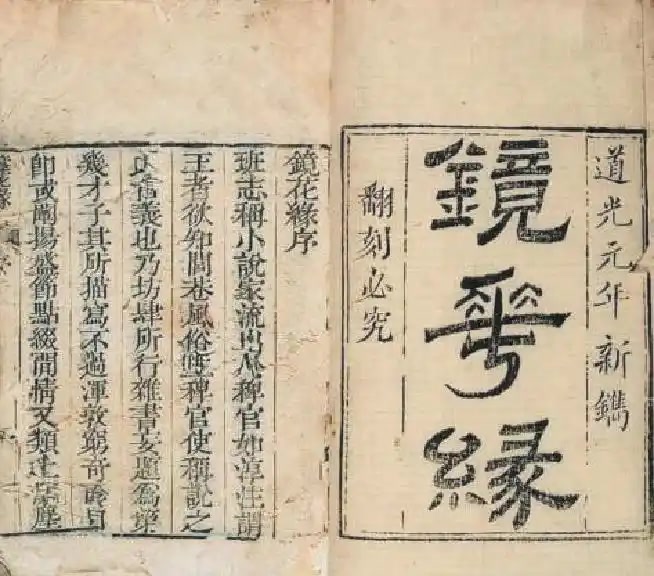 道光元年新鐫
鏡華緣
翻刻必究
鏡花緣序
班志稱小說家流出於稗官如淳注謂
王者欲知閭巷風俗立稗官使稱說之
舊義也乃坊肆所行雜書妄題為第
幾才子其所描寫不過渾敦窮奇面目
即或闡揚盛節點綴閒情又類土塵